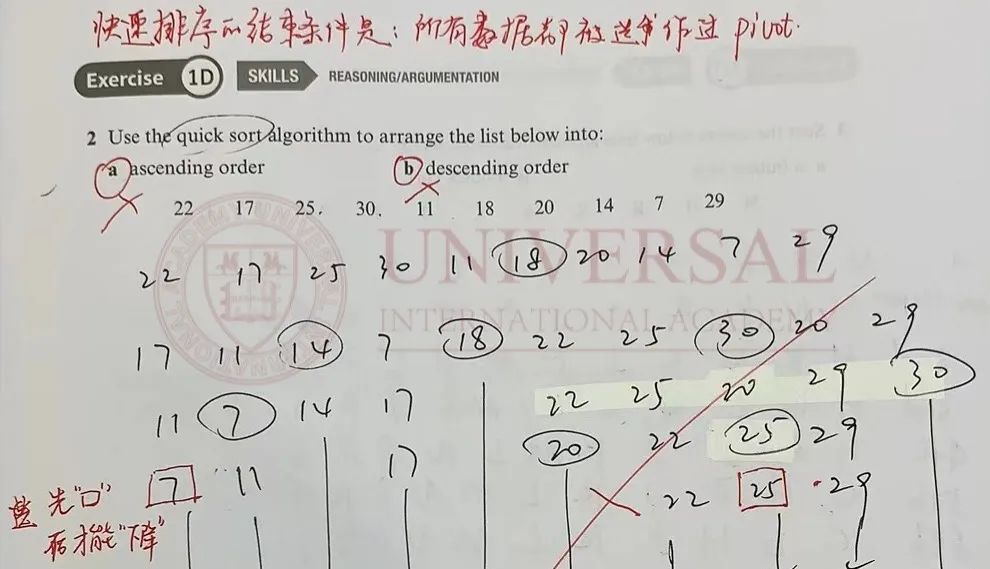 快速排序的结束条件是：所有数据都被选择作过 pivot.
Exercise 1D SKILLS REASONING/ARGUMENTATION
2 Use the quick sort algorithm to arrange the list below into:
a ascending order b descending order
22 17 25. 30. 11 18 20 14 7 29
UNIVERSAL
INTERNATIONAL ACADEMY
22 17 25 30 11 18 20 14 7 29
17 11 14 7 18 22 25 30 20 29
11 7 14 17 22 25 20 29 30
17 20 22 25 29
先"口" 7 11 22 25 29
后才能"下降"